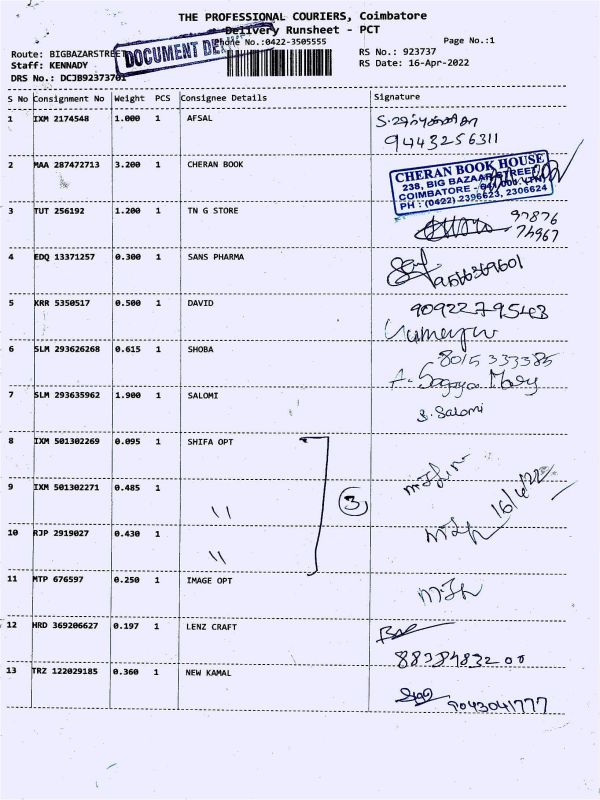 THE PROFESSIONAL COURIERS, Coimbatore
Delivery Runsheet - PCT
Phone No.:0422-3505555
Page No.:1
Route: BIGBAZARSTREET
RS No.: 923737
Staff: KENNADY
RS Date: 16-Apr-2022
DRS No.: DCJB92373701
DOCUMENT DE
S No Consignment No Weight PCS Consignee Details Signature
1 IXM 2174548 1.000 1 AFSAL
9443256311
2 MAA 287472713 3.200 1 CHERAN BOOK
CHERAN BOOK HOUSE
238, BIG BAZAAR STREET
COIMBATORE - 641 001. (TN)
PH : (0422) 2396623, 2306624
3 TUT 256192 1.200 1 TN G STORE
97876
74967
4 EDQ 13371257 0.300 1 SANS PHARMA
5 KRR 5350517 0.500 1 DAVID
9092279543
6 SLM 293626268 0.615 1 SHOBA
8015333385
A. Sagaya Mary
7 SLM 293635962 1.900 1 SALOMI
S. Salomi
8 IXM 501302269 0.095 1 SHIFA OPT
9 IXM 501302271 0.485 1 "
3
16/4/22
10 RJP 2919027 0.430 1 "
11 MTP 676597 0.250 1 IMAGE OPT
12 HRD 369206627 0.197 1 LENZ CRAFT
8838483200
13 TRZ 122029185 0.360 1 NEW KAMAL
9043041777